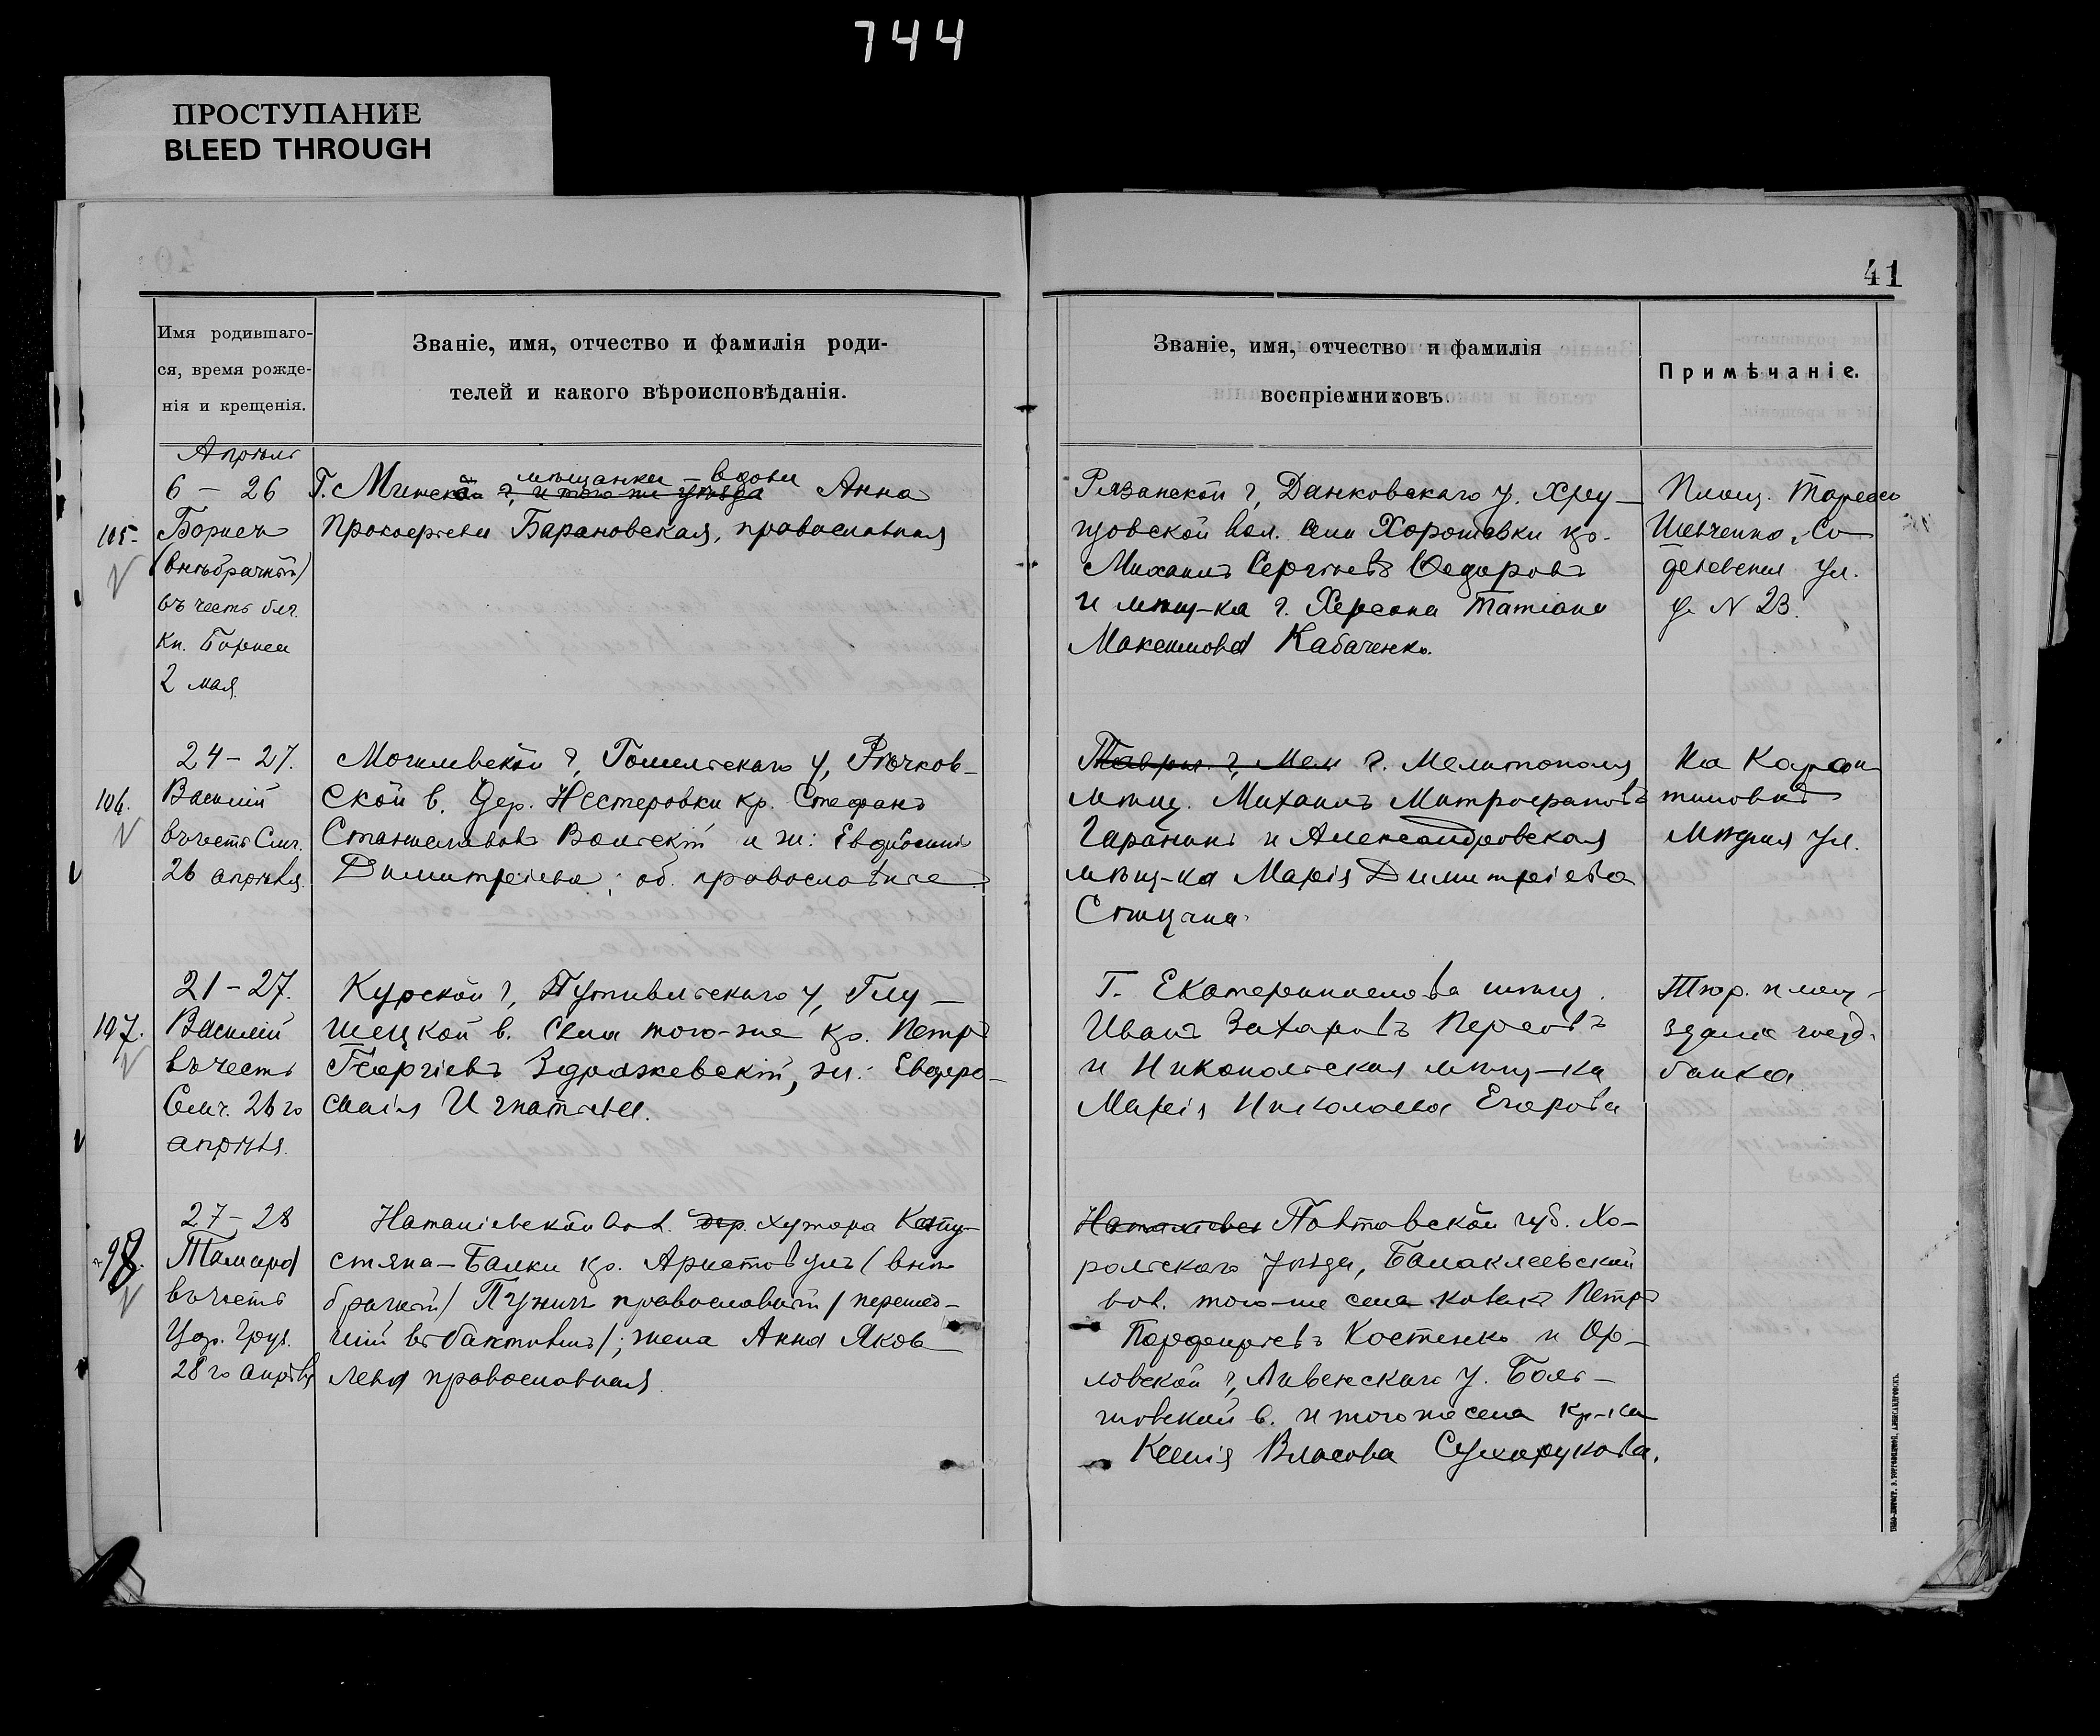 744
ПРОСТУПАНИЕ
BLEED THROUGH
41
Имя родившаго-
ся, время рожде-
нія и крещенія.
Званіе, имя, отчество и фамилія роди-
телей и какого вѣроисповѣданія.
Званіе, имя, отчество и фамилія
воспріемниковъ.
Примѣчаніе.
Апрѣль
105.
6 – 26
Борисъ
(внѣбрачный)
въ честь блг.
кн. Бориса
2 мая.
Г. Минска мѣщанки – вдовы Анна
Прокофіева Барановская, православная
Рязанской г., Данковскаго у. Хру–
щовской вол. села Хорошовки кр.
Михаилъ Сергѣевъ Ѳедоровъ
и мѣщ-ка г. Херсона Татіана
Максимова Кабаченко.
Площ. Тараса
Шевченко,
ул.
д. N 23.
106.
24 – 27.
Василій
въ честь Смч.
26 апрѣля.
Могилевской г., Гомельскаго у., Рѣчков–
ской в. дер. Нестеровки кр. Стефанъ
Станиславовъ Вольскій и ж: Евдокія
Димитріева; об. православные.
Таврич. г., Мел г. Мелитополя
мѣщ. Михаилъ Митрофановъ
Гаранинъ и Александровская
мѣщ-ка Марія Димитріева
На Каран
тиновка
ул.
107.
21 – 27.
Василій
въ честь
Смч. 26 го
апрѣля.
Курской г., Путивльскаго у., Глу–
шецкой в. села того-же кр. Петръ
Георгіевъ Здражевскій, ж: Евфро–
синія Игнатьева.
Г. Екатеринослава мѣщ.
Иванъ Захаровъ Перовъ
и Никопольская мѣщ-ка
Марія Николаева Егорова
Тюр. площ–
зданіе госуд.
банка.
98.
27 – 28
Тамара
въ честь
Цар. Груз.
28 го апрѣля
Наталіевской вол. дер. хутора Капу–
стяна – Балки кр. Аристовулъ (внѣ
брачный) Пужичъ православный (перешед–
шій въ баптизмъ); жена Анна Яков
лева православная.
Наталіевск Полтавской губ. Хо–
рольскаго уѣзда, Балаклеевской
вол. того-же села козакъ Петръ
Парфеніевъ Костенко и Ор–
ловской г., Ливенскаго у. Боль–
шовской в. и того же села кр-ка
Ксенія Власова Сухорукова.